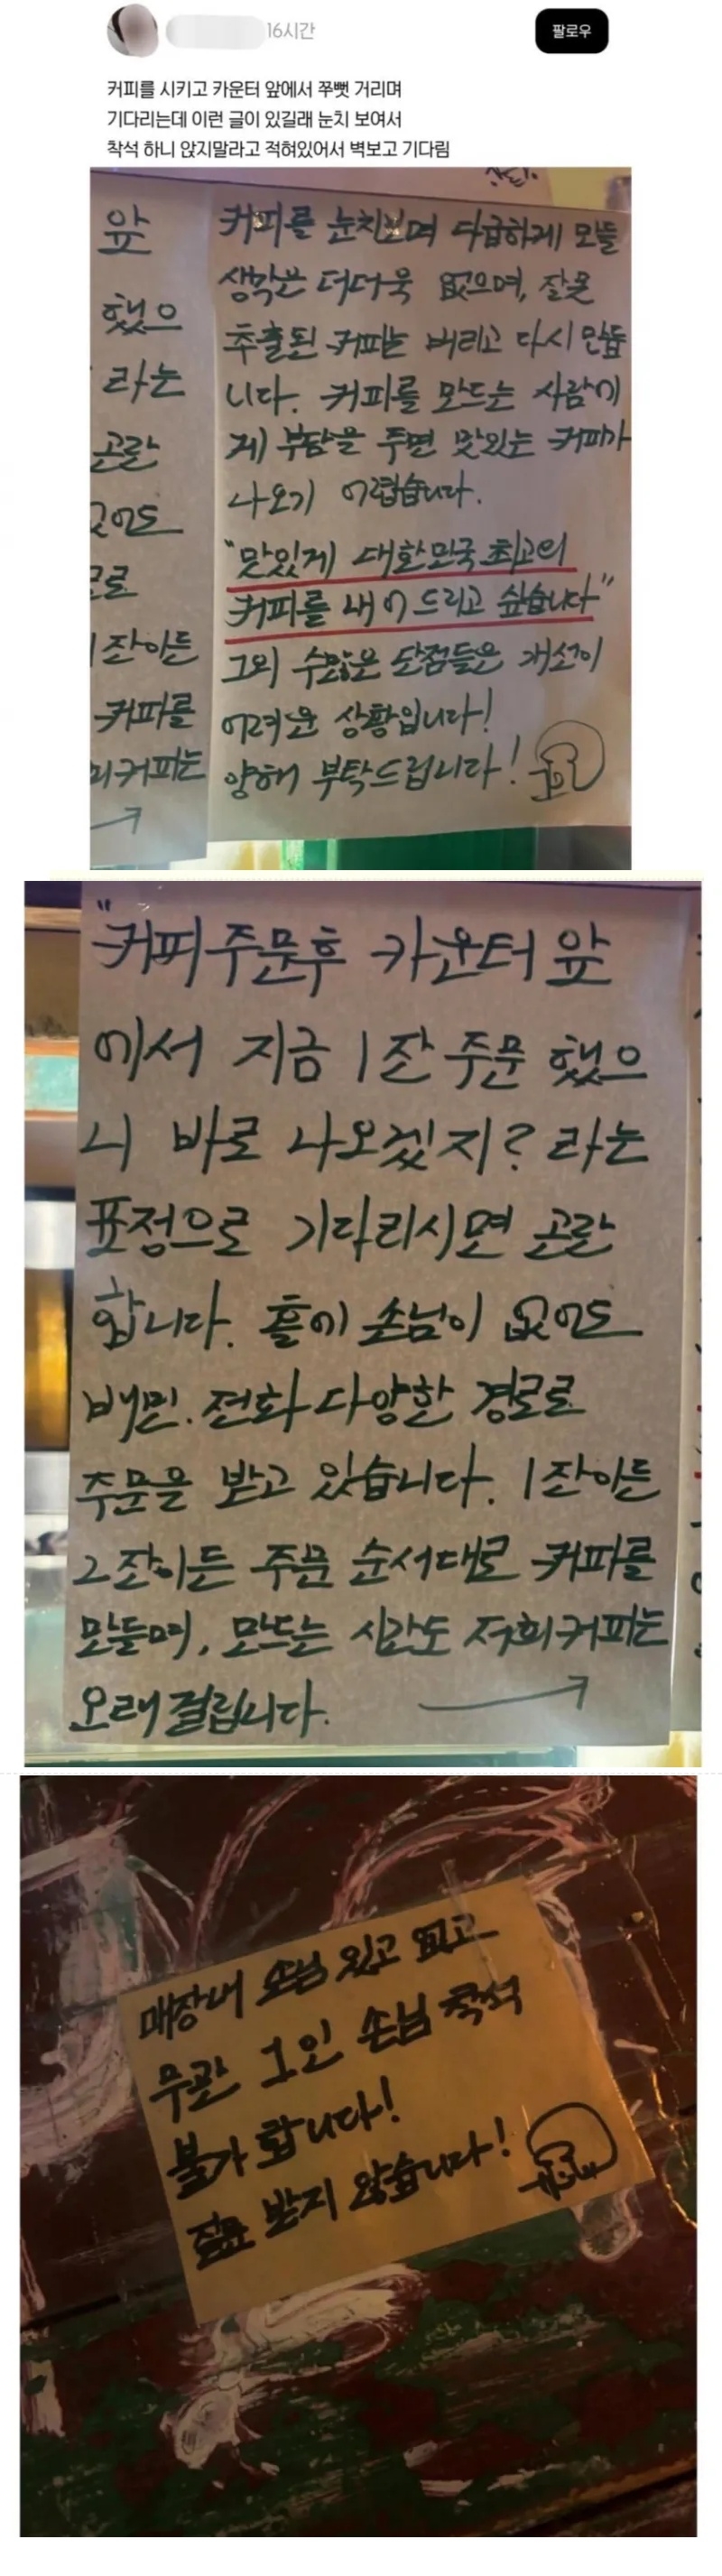 16시간
팔로우
커피를 시키고 카운터 앞에서 쭈뼛 거리며
기다리는데 이런 글이 있길래 눈치 보여서
착석 하니 앉지말라고 적혀있어서 벽보고 기다림
앞
했으
라는
곤란
없어도
로로
1잔이든
커피를
희커피는
커피를 눈치보며 다급하게 만들
생각은 더더욱 없으며, 잘못
추출된 커피는 버리고 다시 만듭
니다. 커피를 만드는 사람에
게 부담을 주면 맛있는 커피가
나오기 어렵습니다.
"맛있게 대한민국 최고의
커피를 내어 드리고 싶습니다"
그외 수많은 단점들은 개선이
어려운 상황입니다!
양해 부탁드립니다!
"커피주문후 카운터 앞
에서 지금 1잔 주문 했으
니 바로 나오겠지? 라는
표정으로 기다리시면 곤란
합니다. 홀에 손님이 없어도
배민. 전화 다양한 경로로
주문을 받고 있습니다. 1잔이든
2잔이든 주문 순서대로 커피를
만들며, 만드는 시간도 저희커피는
오래 걸립니다.
매장내 손님 있고 없고
무관 1인 손님 착석
불가 합니다!
질문 받지 않습니다!